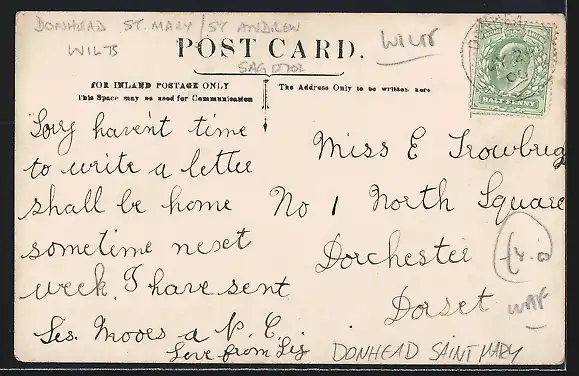 DONHEAD ST. MARY / ST ANDREW
WILTS
WILTS
POST CARD.
FOR INLAND POSTAGE ONLY
This Space may be used for Communication
The Address Only to be written here
HALFPENNY
Sorry havent time
to write a letter
shall be home
sometime next
week. I have sent
Les. Moores a P. C.
Love from Lis
Miss E Trowbrig
No 1 North Square
Dorchester
Dorset
DONHEAD SAINT MARY